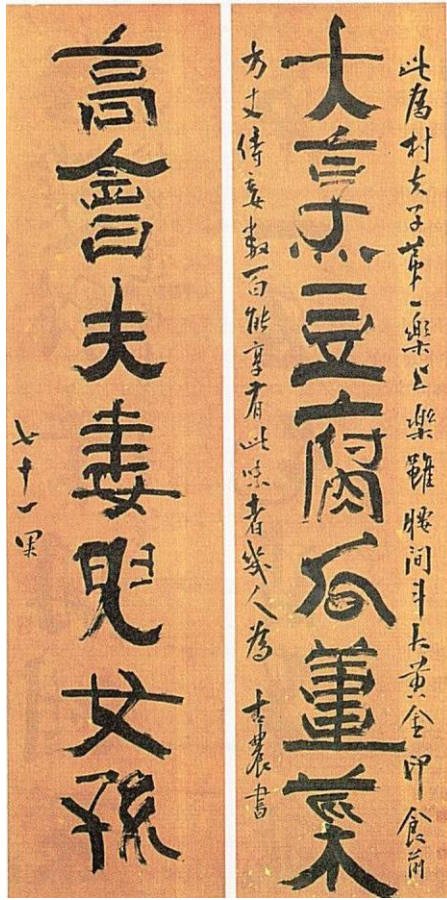 大烹豆腐瓜薑菜
此為村夫子第一樂上樂雖腰間斗大黃金印食前
方丈侍妾數百能享有此味者幾人為 古農書
高會夫妻兒女孫
七十一果